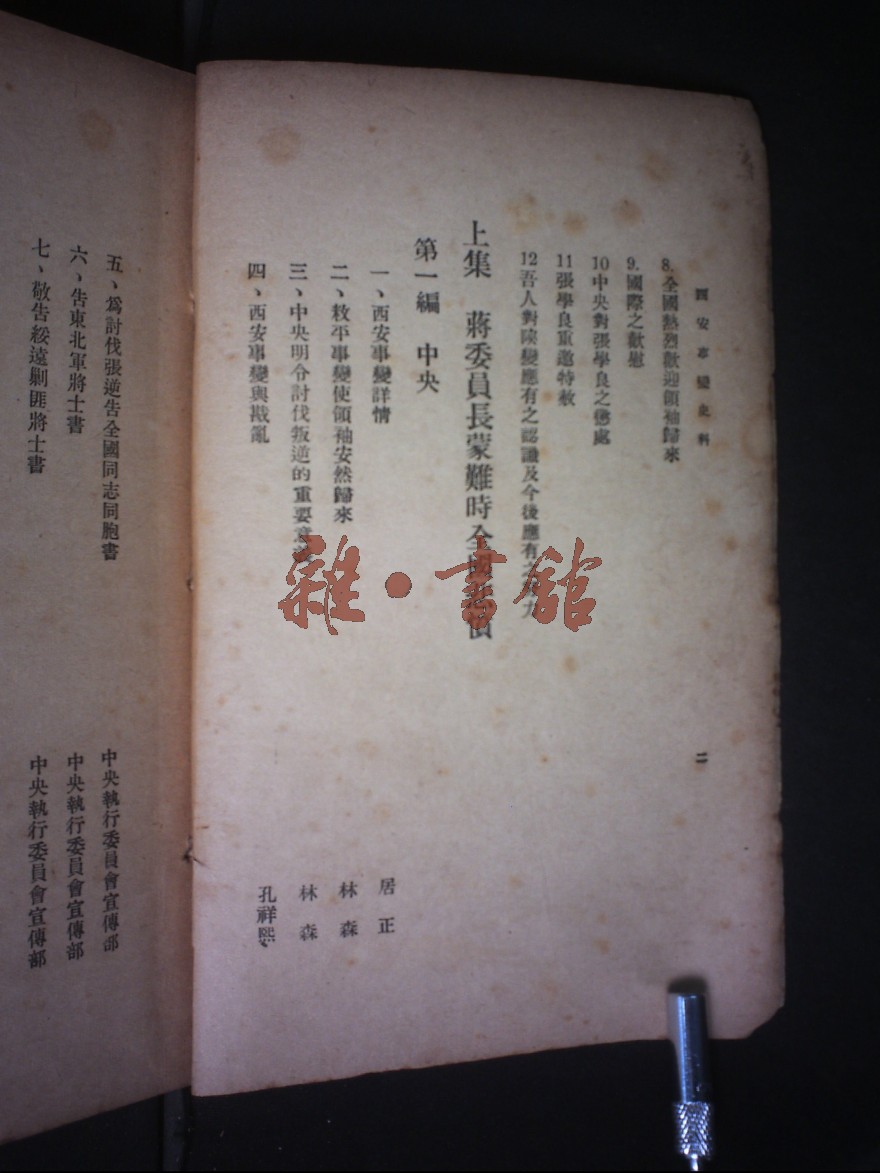 西安事變史料
二
8.全國熱烈歡迎領袖歸來
9.國際之歡慰
10中央對張學良之懲處
11張學良重邀特赦
12吾人對陝變應有之認識及今後應有之努力
上集 蔣委員長蒙難時全國
第一編 中央
一、西安事變詳情 居正
二、敉平事變使領袖安然歸來 林森
三、中央明令討伐叛逆的重要意 林森
四、西安事變與戡亂 孔祥熙
五、爲討伐張逆告全國同志同胞書 中央執行委員會宣傳部
六、告東北軍將士書 中央執行委員會宣傳部
七、敬告綏遠剿匪將士書 中央執行委員會宣傳部
雜·書館